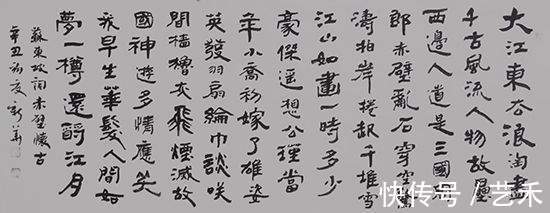 大江東去浪淘盡
千古風流人物故壘
西邊人道是三國周
郎赤壁亂石穿空驚
濤拍岸捲起千堆雪
江山如畫一時多少
豪傑遙想公瑾當
年小喬初嫁了雄姿
英發羽扇綸巾談笑
間檣櫓灰飛煙滅故
國神遊多情應笑
我早生華髮人間如
夢一樽還酹江月
蘇東坡詞赤壁懷古
辛丑初夏
快传号/艺禾